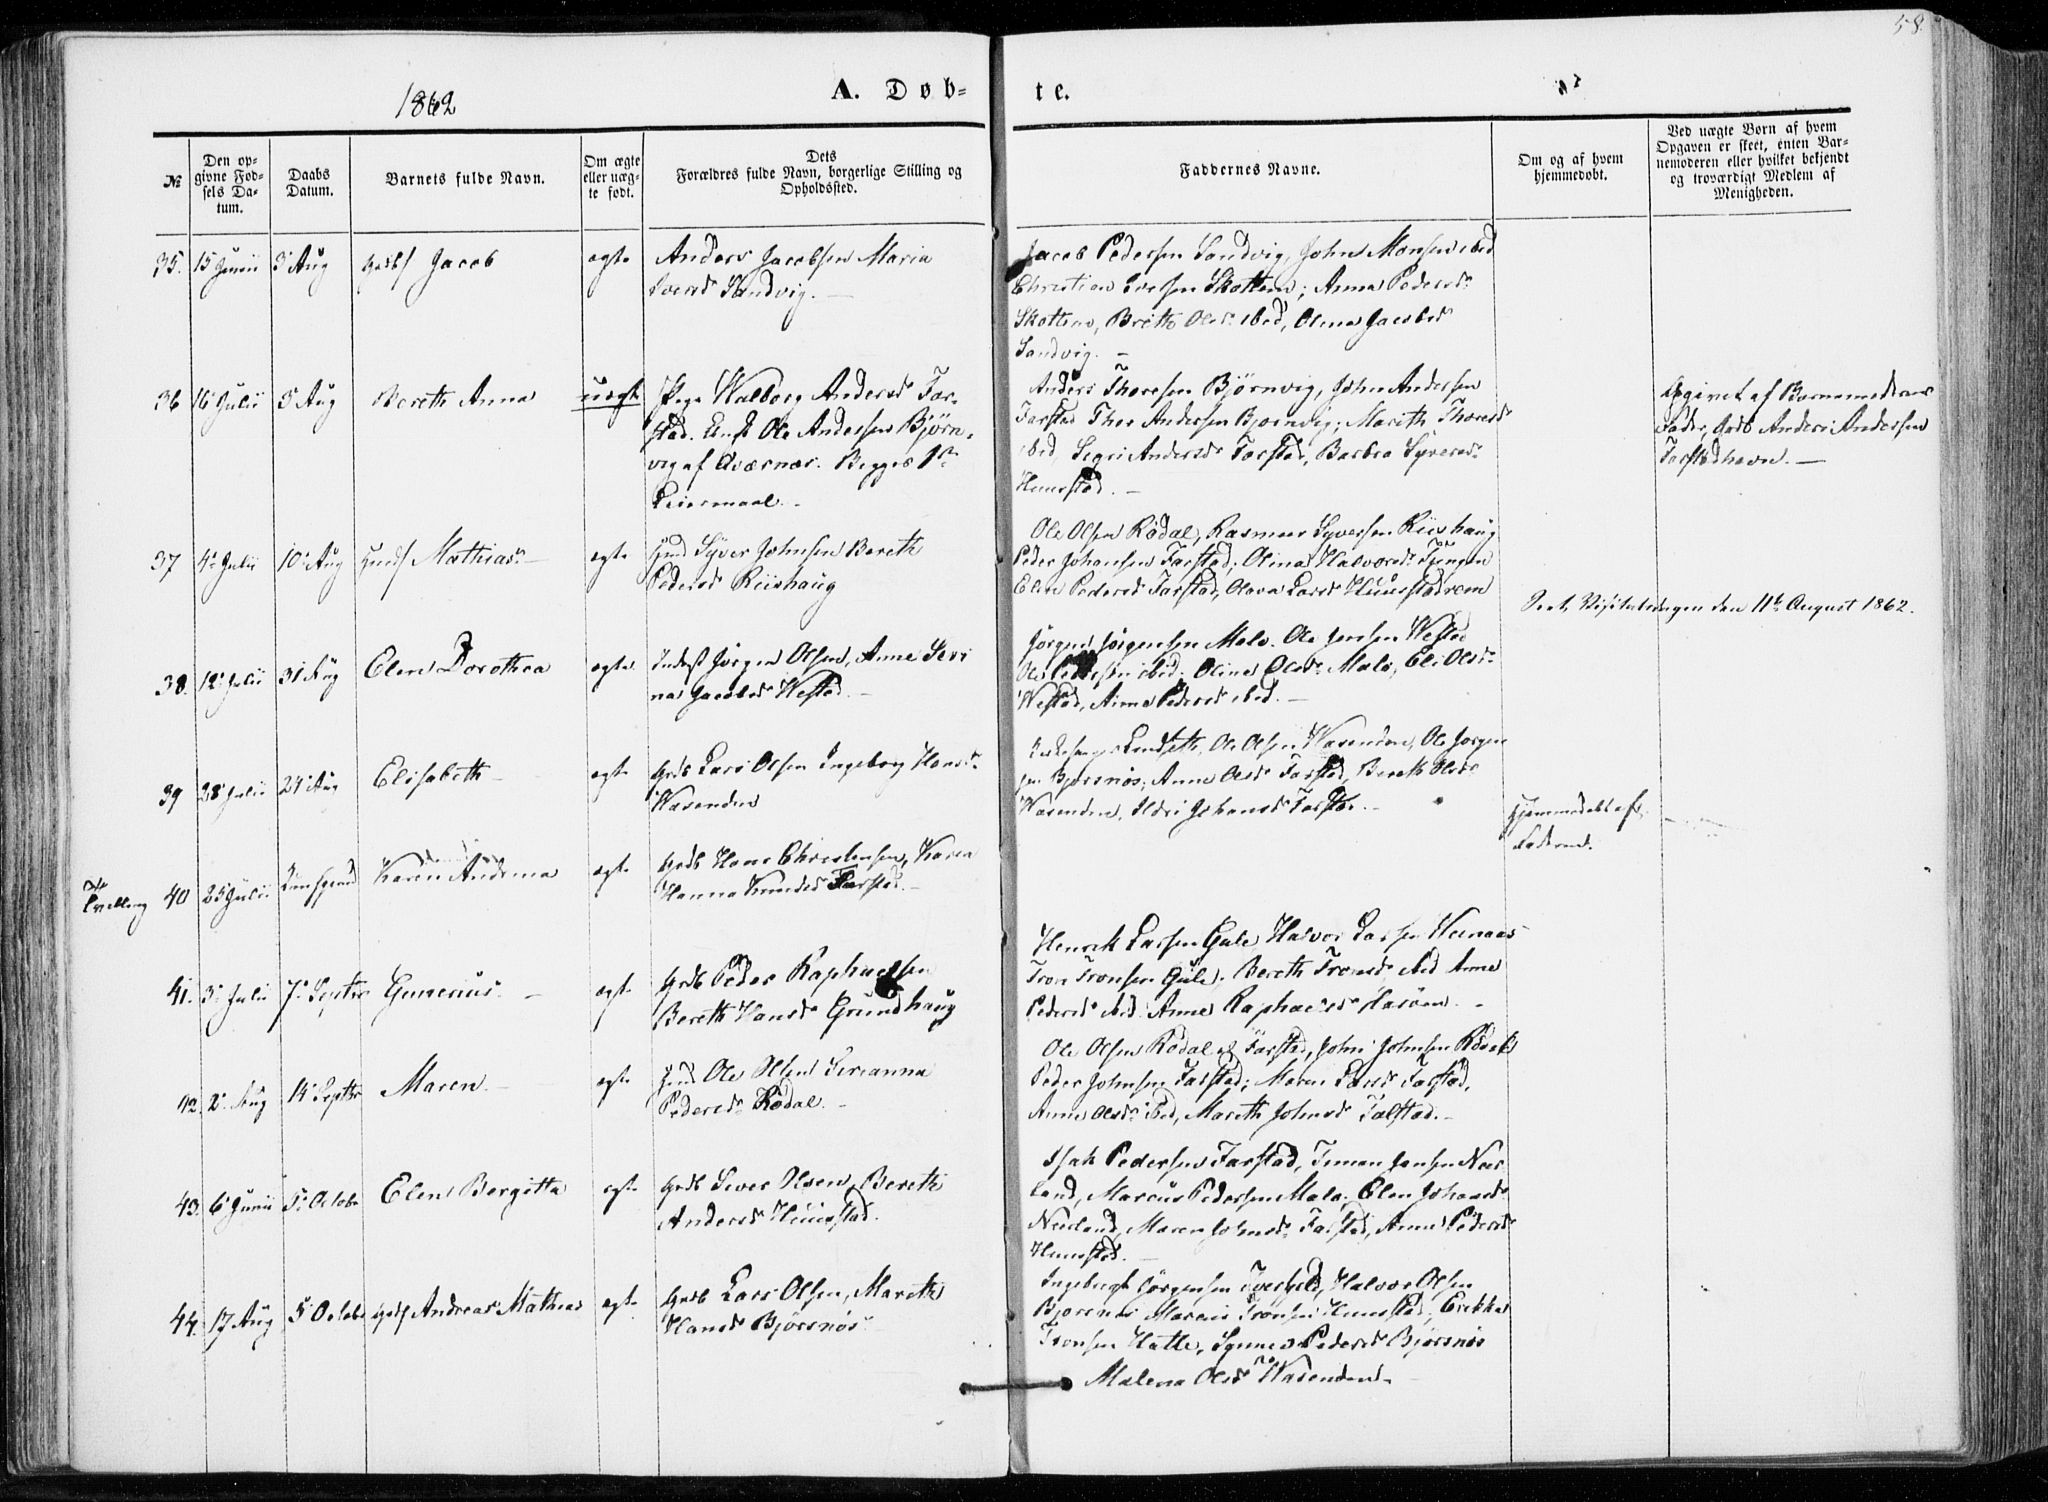 58.
1862
A. Døb-
te.
№
Den op-
givne Fød-
sels Da-
tum.
Daabs
Datum.
Barnets fulde Navn.
Om ægte
eller uæg-
te født.
Dets
Forældres fulde Navn, borgerlige Stilling og
Opholdssted.
Faddernes Navne.
Om og af hvem
hjemmedøbt.
Ved uægte Børn af hvem
Opgaven er skeet, enten Bar-
nemoderen eller hvilket bekjendt
og troværdigt Medlem af
Menigheden.
35. 15 Junii 3 Aug Jacob ægte
Anders Jacobsen Maria
Iversd Sandvig.
Jacob Pedersen Sandvig, John Monsen ibid
Christian Iversen Skottem; Anna Pedersd
Skottem, Brithe Olsd ibid, Olina Jacobsd
Sandvig.
36 16 Julii 3 Aug Bereth Anna uægte
Pige Walborg Andersd Far-
stad. Ole Andersen Björn-
vig af Averøen. Begges 1ste
Leiermaal.
Anders Thoresen Björnvig, John Andersen
Farstad Thor Andersen Bjornvig; Marith Thoresd
ibid, Segri Andersd Farstad, Barbra Syversd
Huusstad.
Opgivet af Barnemoderens
Fader, Anders Andersen
Farstadhavn.
37 4 Julii 10 Aug Mathias ægte
Syver Johnsen Bereth
Pedersd Riishaug
Ole Olsen Rödal, Rasmus Syversen Riishaug
Peder Johansen Farstad; Olina Halvorsd
Elen Pedersd Farstad, Olava Larsd
den 11te August 1862.
38. 12 Julii 31 Aug Elen Dorothea ægte
Jörgen Olsen, Anne Seri
na Jacobsd Westad.
Jörgen Jörgensen Male. Ole Jensen Westad
Ole Pedersen ibid; Olina Olsd Male, Eli Olsd
Westad, Anna Pedersd ibid.
39 28 Julii 24 Aug Elisabeth ægte
Lars Olsen Ingeborg Hansd
Wasenden
Lindseth, Ole Olsen Wasenden, Ole Jorgen
sen Bjørsnös; Anne Olsd Farstad, Bereth Olsd
Wasenden, Ildri Johansd Farstad.
Tvilling 40 25 Julii Karen Andrina ægte
Hans Christensen, Karen
Hanna Knudsd Farstad.
Hjemmedøbt af
Faderen.
41. 3 Julii 7 Septbr Gunerius ægte
Peder Raphaelsen
Bereth Hansd Grundhaug
Henrik Larsen Gule, Halvor Larsen
Tron Tronsen Gule; Bereth Tronsd ibid Anne
Pedersd ibid. Anne Raphaelsd
42. 2 Aug 14 Septbr Maren ægte
Ole Olsen Serianna
Pedersd Rödal.
Ole Olsen Rödal, Farstad, John Johnsen
Peder Johnsen Farstad; Maren Larsd Farstad,
Anne Olsd ibid, Mareth Johnsd Farstad.
43. 6 Junii 5 October Elen Bergitta ægte
Siver Olsen, Bereth
Andersd Huusstad.
Isak Pedersen Farstad, Simon Jensen Neer
land, Marcus Pedersen Male; Elen Johansd
Neerland, Maren Johnsd Farstad, Anne Pedersd
Huusstad.
44. 17 Aug 5 October Andreas Mathias ægte
Lars Olsen, Mareth
Hansd Bjørsnös
Ingebrigt Jörgensen, Halvor Olsen
Bjørsnös Tronsen Huusstad; Erikka
Tronsen Hatle, Synnev Pedersd Bjørsnös
Malena Olsd Wasenden